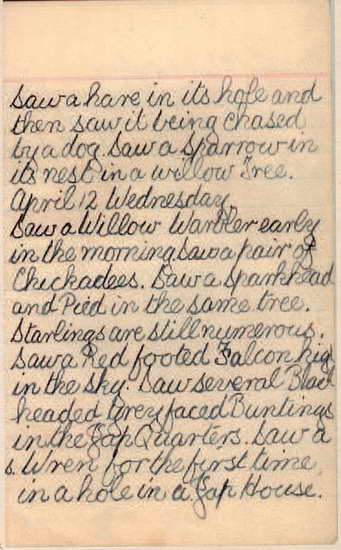 Saw a hare in its hole and
then saw it being chased
by a dog. Saw a Sparrow in
its nest in a willow Tree.
April 12 Wednesday.
Saw a Willow Warbler early
in the morning. Saw a pair of
Chickadees. Saw a
and Pied in the same tree.
Starlings are still numerous.
Saw a Red footed Falcon hig
in the sky. Saw several Black
headed Grey faced Buntings
in the Jap Quarters. Saw a
s. Wren for the first time,
in a hole in a Jap House.